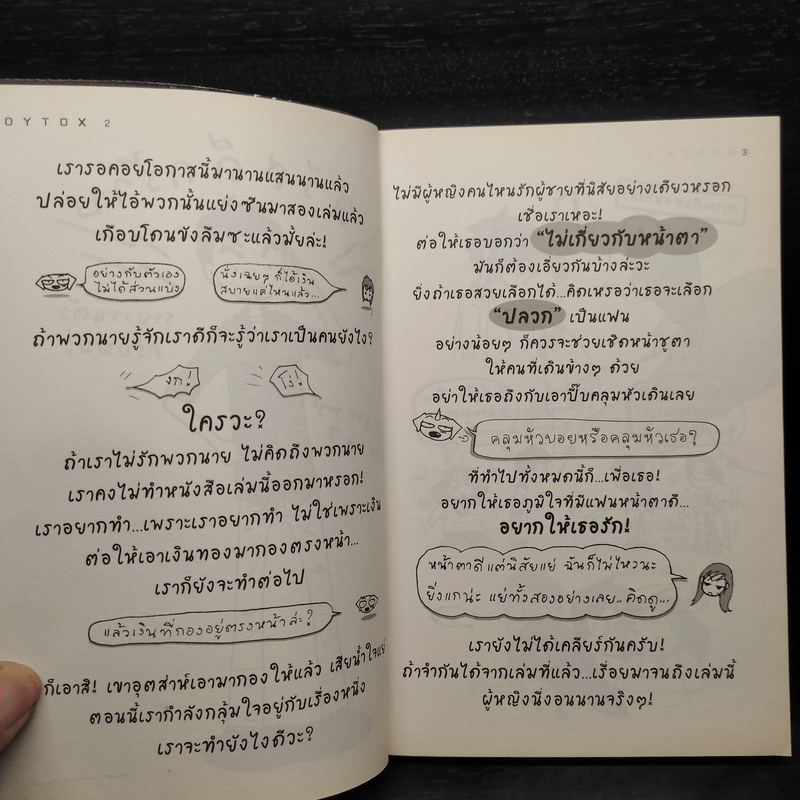 OYTOX 2
เรารอคอยโอกาสนี้มานานแสนนานแล้ว
ปล่อยให้ไอ้พวกนั้นแย่งซีนมาสองเล่มแล้ว
เกือบโดนขังลืมซะแล้วมั้ยล่ะ!
อย่างกับตัวเอง
ไม่ได้ส่วนแบ่ง
นั่งเฉยๆ ก็ได้เงิน
สบายแค่ไหนแล้ว...
ถ้าพวกนายรู้จักเราดีก็จะรู้ว่าเราเป็นคนยังไง?
งก!
โง่!
ใครวะ?
ถ้าเราไม่รักพวกนาย ไม่คิดถึงพวกนาย
เราคงไม่ทำหนังสือเล่มนี้ออกมาหรอก!
เราอยากทำ...เพราะเราอยากทำ ไม่ใช่เพราะเงิน
ต่อให้เอาเงินทองมากองตรงหน้า...
เราก็ยังจะทำต่อไป
แล้วเงินที่กองอยู่ตรงหน้าล่ะ?
ก็เอาสิ! เขาอุตส่าห์เอามากองให้แล้ว เสียน้ำใจแย่
ตอนนี้เรากำลังกลุ้มใจอยู่กับเรื่องหนึ่ง
เราจะทำยังไงดีวะ?
3
ไม่มีผู้หญิงคนไหนรักผู้ชายที่นิสัยอย่างเดียวหรอก
เชื่อเราเหอะ!
ต่อให้เธอบอกว่า “ไม่เกี่ยวกับหน้าตา”
มันก็ต้องเอี่ยวกันบ้างล่ะวะ
ยิ่งถ้าเธอสวยเลือกได้...คิดเหรอว่าเธอจะเลือก
“ปลวก” เป็นแฟน
อย่างน้อยๆ ก็ควรจะช่วยเชิดหน้าชูตา
ให้คนที่เดินข้างๆ ด้วย
อย่าให้เธอถึงกับเอาปี๊บคลุมหัวเดินเลย
คลุมหัวบอยหรือคลุมหัวเธอ?
ที่ทำไปทั้งหมดนี้ก็...เพื่อเธอ!
อยากให้เธอภูมิใจที่มีแฟนหน้าตาดี...
อยากให้เธอรัก!
หน้าตาดีแต่นิสัยแย่ ฉันก็ไม่ไหวนะ
ยิ่งแกน่ะ แย่ทั้งสองอย่างเลย..คิดดู...
เรายังไม่ได้เคลียร์กันครับ!
ถ้าจำกันได้จากเล่มที่แล้ว...เรื่อยมาจนถึงเล่มนี้
ผู้หญิงนี่งอนนานจริงๆ!